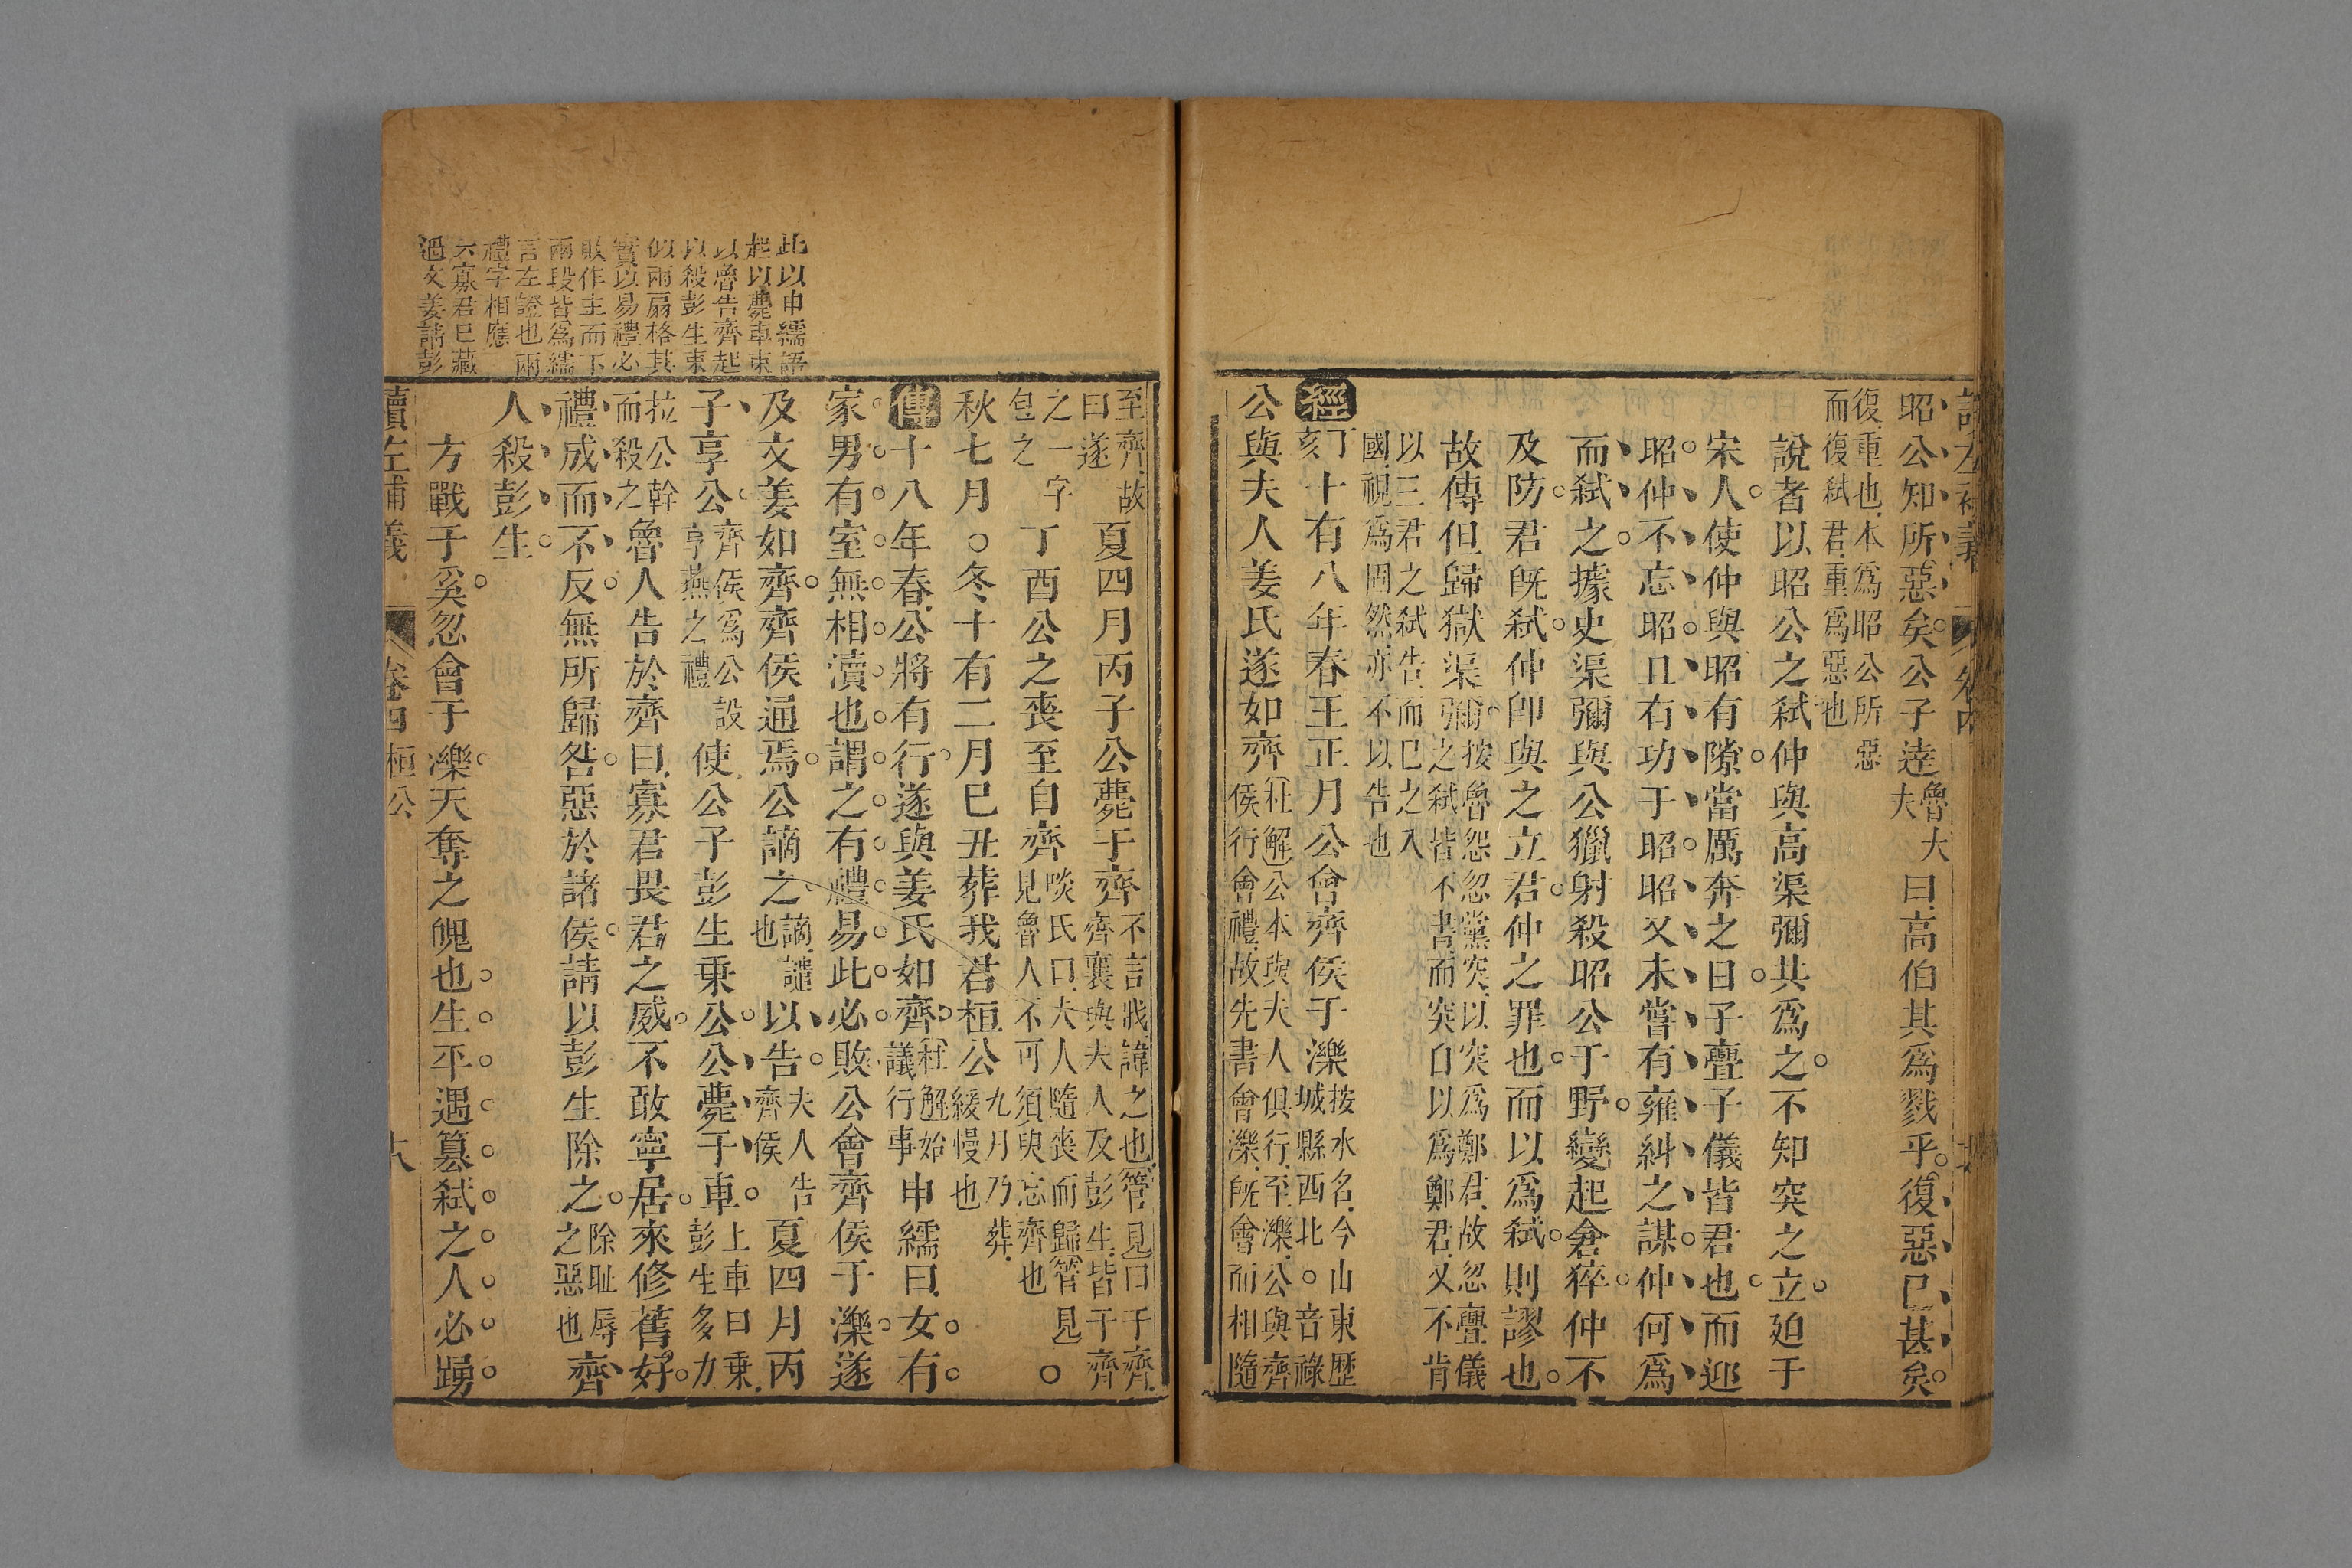 昭公知所惡矣公子逹魯大夫曰高伯其爲戮乎復惡巳甚矣
復重也本爲昭公所惡而復弑君重爲惡也
說者以昭公之弑仲與高渠彌共爲之不知突之立廹于
宋人使仲與昭有隙當厲奔之日子亹子儀皆君也而迎
昭仲不忘昭昭且右功于昭昭又未嘗有雍糾之謀仲何爲
而弑之據史渠彌與公獵射殺昭公于野變起倉猝仲不
及防君旣弑仲卽與之立君仲之罪也而以爲弑則謬也
故傳但歸獄渠彌按魯怨忽黨突以突爲鄭君故忽亹儀之弑皆不書而突自以爲鄭君又不肯
以三君之弑告而巳之入國視爲固然亦不以告也
經丁亥十有八年春王正月公會齊侯于濼按水名今山東歷城縣西北○音祿
公與夫人姜氏遂如齊杜解公本與夫人俱行至濼公與齊侯行會禮故先書會濼旣會而相隨
至齊故曰遂夏四月丙子公薨于齊不言戕諱之也管見曰于齊齊襄與夫人及彭生皆于齊
之一字包之丁酉公之喪至自齊啖氏曰夫人隨喪而歸管見見魯人不可須臾忘齊也○
秋七月○冬十有二月巳丑葬我君桓公九月乃葬緩慢也
傳十八年春公將有行遂與姜氏如齊杜解始議行事申繻曰女有
家男有室無相瀆也謂之有禮易此必敗公會齊侯于濼遂
及文姜如齊齊侯通焉公謫之謫譴也以告夫人告齊侯夏四月丙
子享公齊侯爲公設享燕之禮使公子彭生乗公公薨于車上車曰乗彭生多力
拉公幹而殺之魯人告於齊曰寡君畏君之威不敢寧居來修舊好
禮成而不反無所歸咎惡於諸侯請以彭生除之除耻辱之惡也齊
人殺彭生
方戰于奚忽會于濼天奪之魄也生平遇簒弑之人必踴
讀左補義
卷四桓公
此以申繻語
起以薨車束
以魯告齊起
以殺彭生束
似兩扇格其
實以易禮必
敗作主而下
兩段皆爲繻
言左證也兩
禮字相應
六寡君巳藏
過文姜請彭